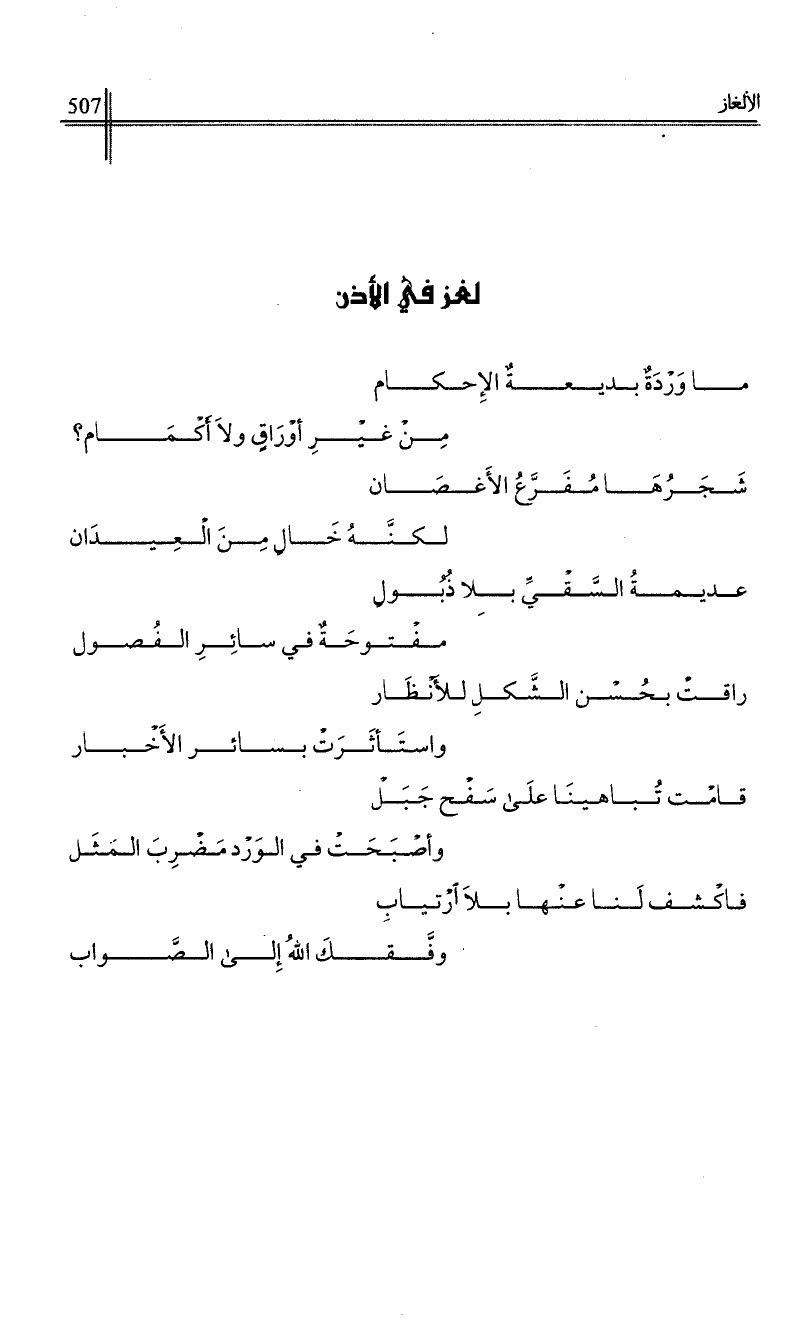 الألغاز
507
لغز في الأذن
ما وَرْدَةٌ بديعةٌ الإِحكام
مِنْ غيْرِ أوْرَاقٍ ولاَ أَكْمَام؟
شَجَرُهَا مُفَرَّعُ الأَغصَان
لكنَّهُ خَالٍ مِنَ الْعِيدَان
عديمةُ السَّقْيِّ بِلا ذُبُولٍ
مفْتوحَةٌ في سائِرِ الفُصول
راقتْ بحُسْن الشَّكلِ للأَنْظَار
واستَأثَرَتْ بسائر الأَخْبار
قامْت تُباهينَا علَى سَفْح جَبَلْ
وأصْبَحَتْ في الوَرْد مَضْرِبَ المَثَل
فاكْشف لَنا عنْها بلاَ ٱرْتيابِ
وفَّقكَ اللهُ إِلى الصَّواب